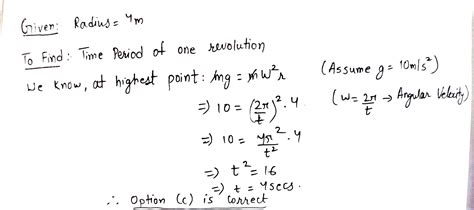 Given: Radius = 4m
To Find: Time Period of one revolution
We know, at highest point: mg = mω²r (Assume g = 10m/s²)
⇒ 10 = (2π/t)² · 4 (ω = 2π/t → Angular Velocity)
⇒ 10 = 4π²/t² · 4
⇒ t² = 16
⇒ t = 4secs.
∴ Option (c) is correct